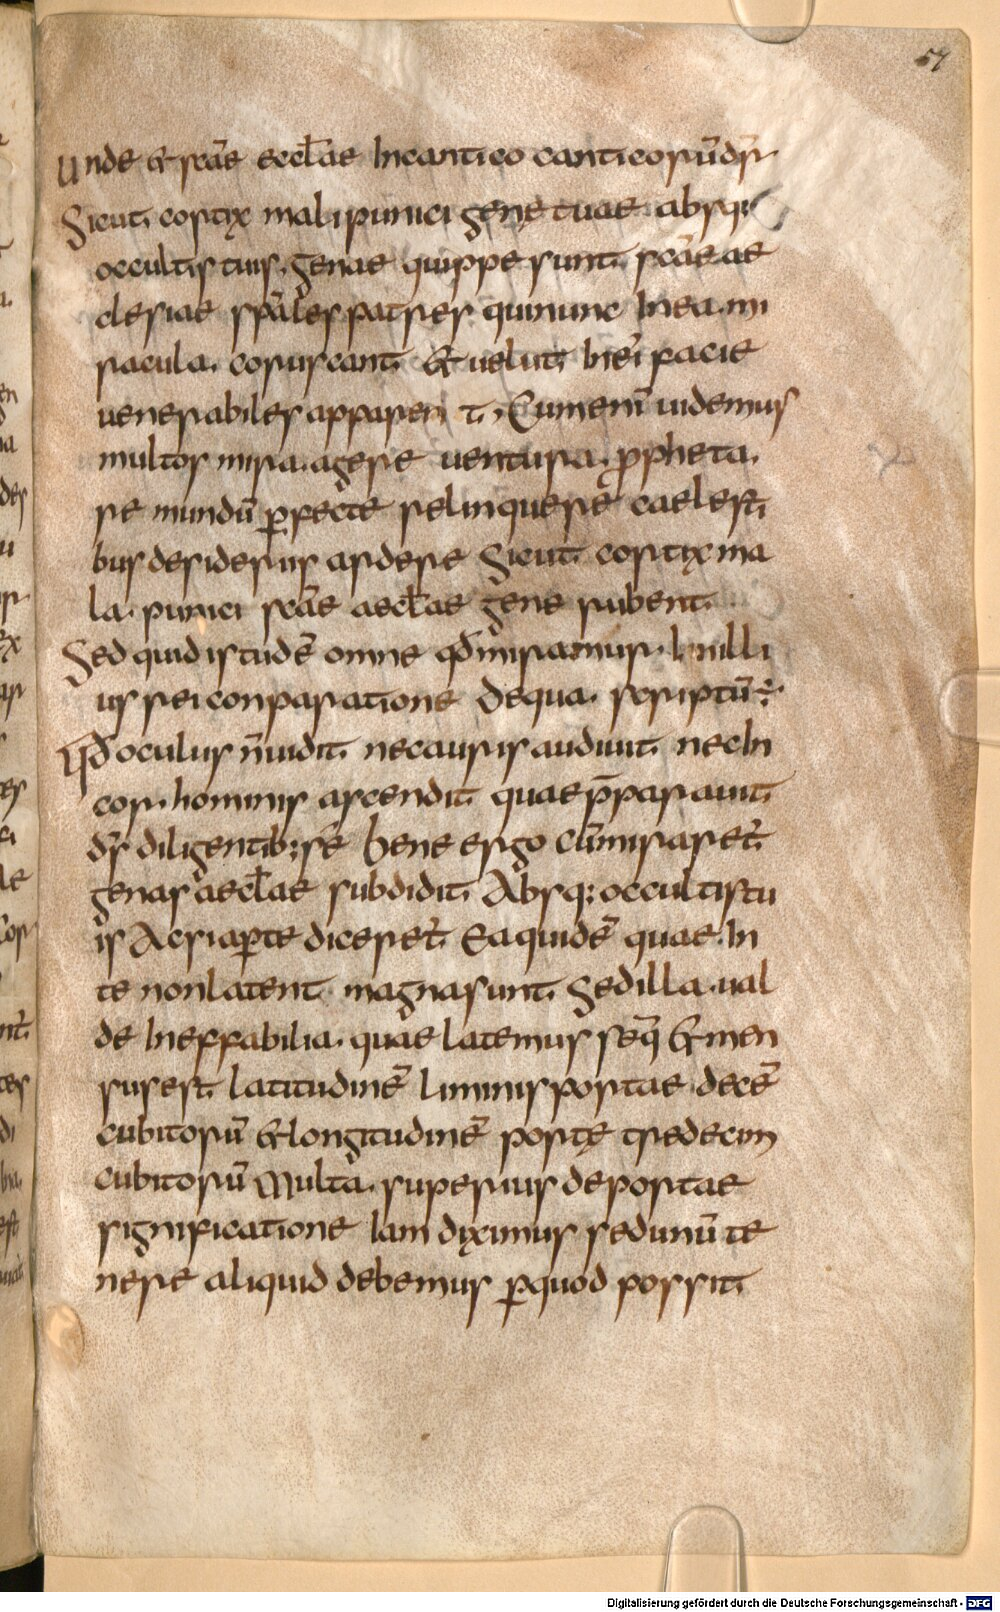 57
Unde & scāe eccƚae In cantico canticorū dr̄
Sicut cortix mali punici gene tuae absq;
occultis tuis, genae quippe sunt scāe ae
clesiae spālespatres qui nunc In ea mi
racula coruscant & uelut In ei facie
uenerabiles apparent, Cum enī uidemus
multos mira agere uentura, ꝓpheta
re mundū ꝑfecte relinquere caelesti
bus desideriis ardere Sicut cortix ma
la punici scāe aecƚae gene rubent
Sed quid istud ē omne qđ miramur In illi
us rei conparatione De qua scriptū :
qđ oculus n̄ uidit nec auris audiuit nec In
cor hominis ascendit quae p̄parauit
dr̄ diligentib; se Bene ergo cū miraret̄
genas aecƚae subdidit Absq; occultis tu
is Ac si aꝑte diceret̄ Ea quidē quae In
te non latent magna sunt, Sed illa ual
de Ineffabilia quae latemus seq̄ & men
sus est latitudinē liminis portae decē
cubitorū & longitudinē portę tredecim
cubitorū Multa superius de portae
significatione Iam diximus sed unū te
nere aliquid debemus ꝑ quod possit
Digitalisierung gefördert durch die Deutsche Forschungsgemeinschaft - DFG